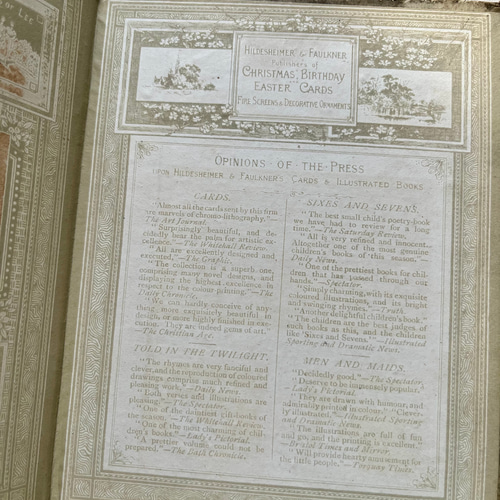 OF LEE
HILDESHEIMER & FAULKNER
Publishers of
CHRISTMAS, BIRTHDAY
EASTER CARDS
FIRE SCREENS & DECORATIVE ORNAMENTS
OPINIONS · OF · THE · PRESS
UPON HILDESHEIMER & FAULKNER'S CARDS & ILLUSTRATED BOOKS
CARDS.
"Almost all the cards sent by this firm
are marvels of chromo-lithography."—
The Art Journal.
"Surprisingly beautiful, and de-
cidedly bear the palm for artistic ex-
cellence."—The Whitehall Review.
"All are excellently designed and
executed."—The Graphic.
"The collection is a superb one,
comprising many novel designs, and
displaying the highest excellence in
respect to the colour printing."—The
Daily Chronicle.
"We can hardly conceive of any-
thing more exquisitely beautiful in
design, or more highly finished in exe-
cution. They are indeed gems of art."
—The Christian Age.
TOLD IN THE TWILIGHT.
"The rhymes are very fanciful and
clever, and the reproductions of coloured
drawings comprise much refined and
pleasing work."—Daily News.
"Both verses and illustrations are
pleasing."—The Spectator.
"One of the daintiest gift-books of
the season."—The Whitehall Review.
"One of the most charming of chil-
dren's books."—Lady's Pictorial.
"A prettier volume could not be
prepared."—The Bath Chronicle.
SIXES AND SEVENS.
"The best small child's poetry-book
we have had to review for a long
time."—The Saturday Review.
"All is very refined and innocent..
Altogether one of the most genuine
children's books of this season."—
Daily News.
"One of the prettiest books for chil-
dren that has passed through our
hands."—Spectator.
"Simply charming, with its exquisite
coloured illustrations, and its bright
and swinging rhymes."—Truth.
"Another delightful children's book."
"The children are the best judges of
such books as these, and the children
like 'Sixes and Sevens.'"—Illustrated
Sporting and Dramatic News.
MEN AND MAIDS.
"Decidedly good."—The Spectator.
"Deserve to be immensely popular."
—Lady's Pictorial.
"They are drawn with humour, and
admirably printed in colours." "Clever-
ly illustrated."—Illustrated Sporting
and Dramatic News.
"The illustrations are full of fun
and go, and the printing is excellent."
—Bristol Times and Mirror.
"Will provide hearty amusement for
the little people."—Torquay Times.